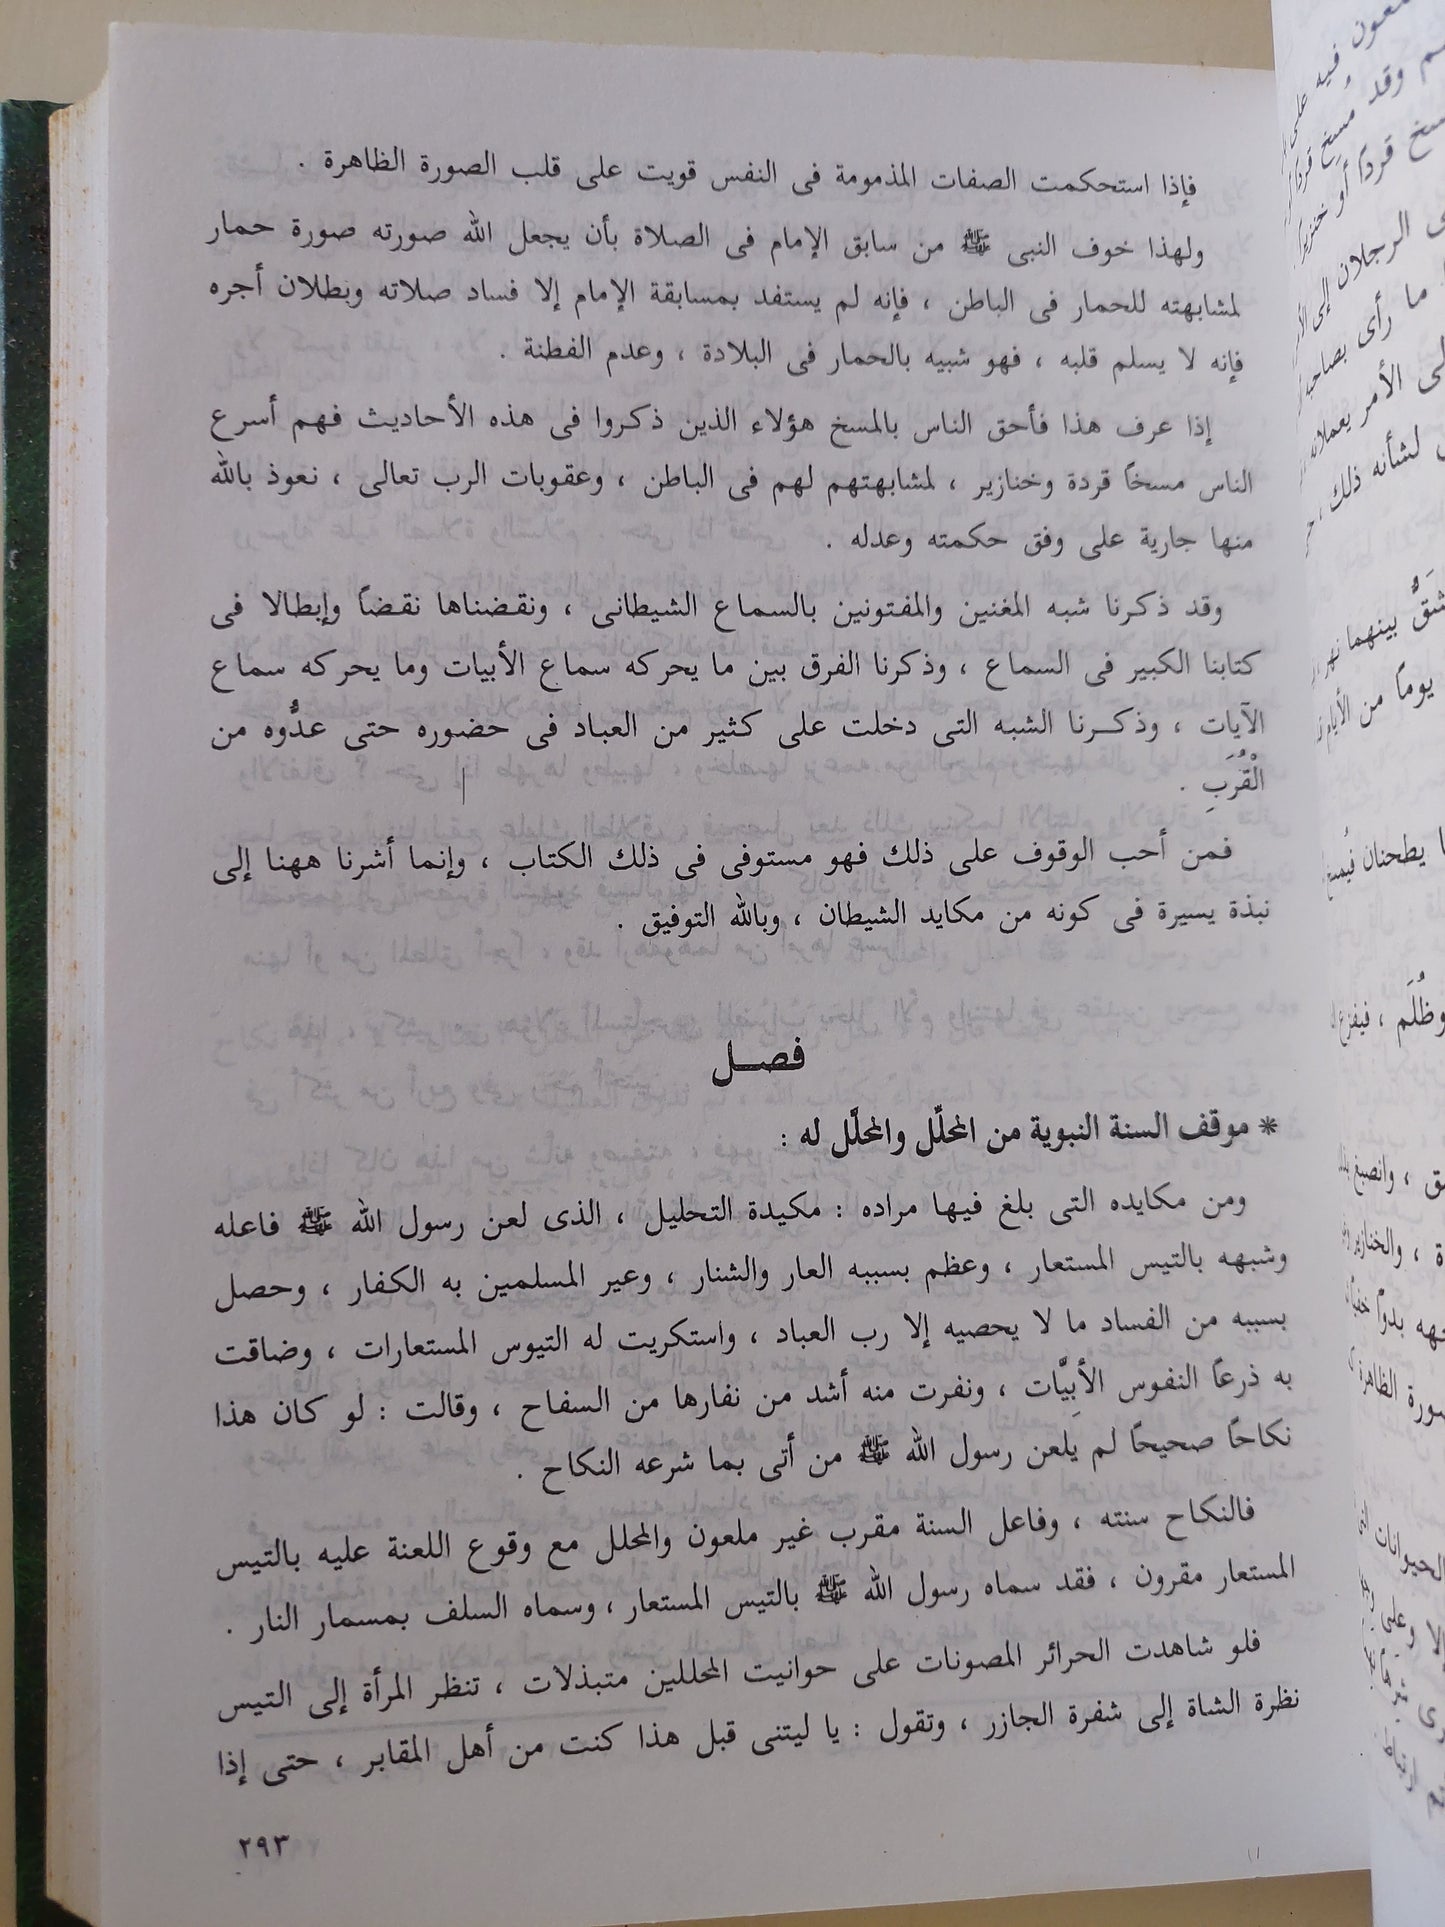 فإذا استحكمت الصفات المذمومة فى النفس قويت على قلب الصورة الظاهرة .
ولهذا خوف النبى ﷺ من سابق الإمام فى الصلاة بأن يجعل الله صورته صورة حمار
لمشابهته للحمار فى الباطن ، فإنه لم يستفد بمسابقة الإمام إلا فساد صلاته وبطلان أجره
فإنه لا يسلم قلبه ، فهو شبيه بالحمار فى البلادة ، وعدم الفطنة .
إذا عرف هذا فأحق الناس بالمسخ هؤلاء الذين ذكروا فى هذه الأحاديث فهم أسرع
الناس مسخًا قردة وخنازير ، لمشابهتهم لهم فى الباطن ، وعقوبات الرب تعالى ، نعوذ بالله
منها جارية على وفق حكمته وعدله .
وقد ذكرنا شبه المغنين والمفتونين بالسماع الشيطانى ، ونقضناها نقضًا وإبطالا فى
كتابنا الكبير فى السماع ، وذكرنا الفرق بين ما يحركه سماع الأبيات وما يحركه سماع
الآيات ، وذكرنا الشبه التى دخلت على كثير من العباد فى حضوره حتى عدُّوه من
الْقُرَبِ .
فمن أحب الوقوف على ذلك فهو مستوفى فى ذلك الكتاب ، وإنما أشرنا ههنا إلى
نبذة يسيرة فى كونه من مكايد الشيطان ، وبالله التوفيق .
فصل
* موقف السنة النبوية من المحلِّل والمحلَّل له :
ومن مكايده التى بلغ فيها مراده : مكيدة التحليل ، الذى لعن رسول الله ﷺ فاعله
وشبهه بالتيس المستعار ، وعظم بسببه العار والشنار ، وعير المسلمين به الكفار ، وحصل
بسببه من الفساد ما لا يحصيه إلا رب العباد ، واستكريت له التيوس المستعارات ، وضاقت
به ذرعًا النفوس الأبِيَّات ، ونفرت منه أشد من نفارها من السفاح ، وقالت : لو كان هذا
نكاحًا صحيحًا لم يلعن رسول الله ﷺ من أتى بما شرعه النكاح .
فالنكاح سنته ، وفاعل السنة مقرب غير ملعون والمحلل مع وقوع اللعنة عليه بالتيس
المستعار مقرون ، فقد سماه رسول الله ﷺ بالتيس المستعار ، وسماه السلف بمسمار النار .
فلو شاهدت الحرائر المصونات على حوانيت المحللين متبذلات ، تنظر المرأة إلى التيس
نظرة الشاة إلى شفرة الجازر ، وتقول : يا ليتنى قبل هذا كنت من أهل المقابر ، حتى إذا
٢٩٣